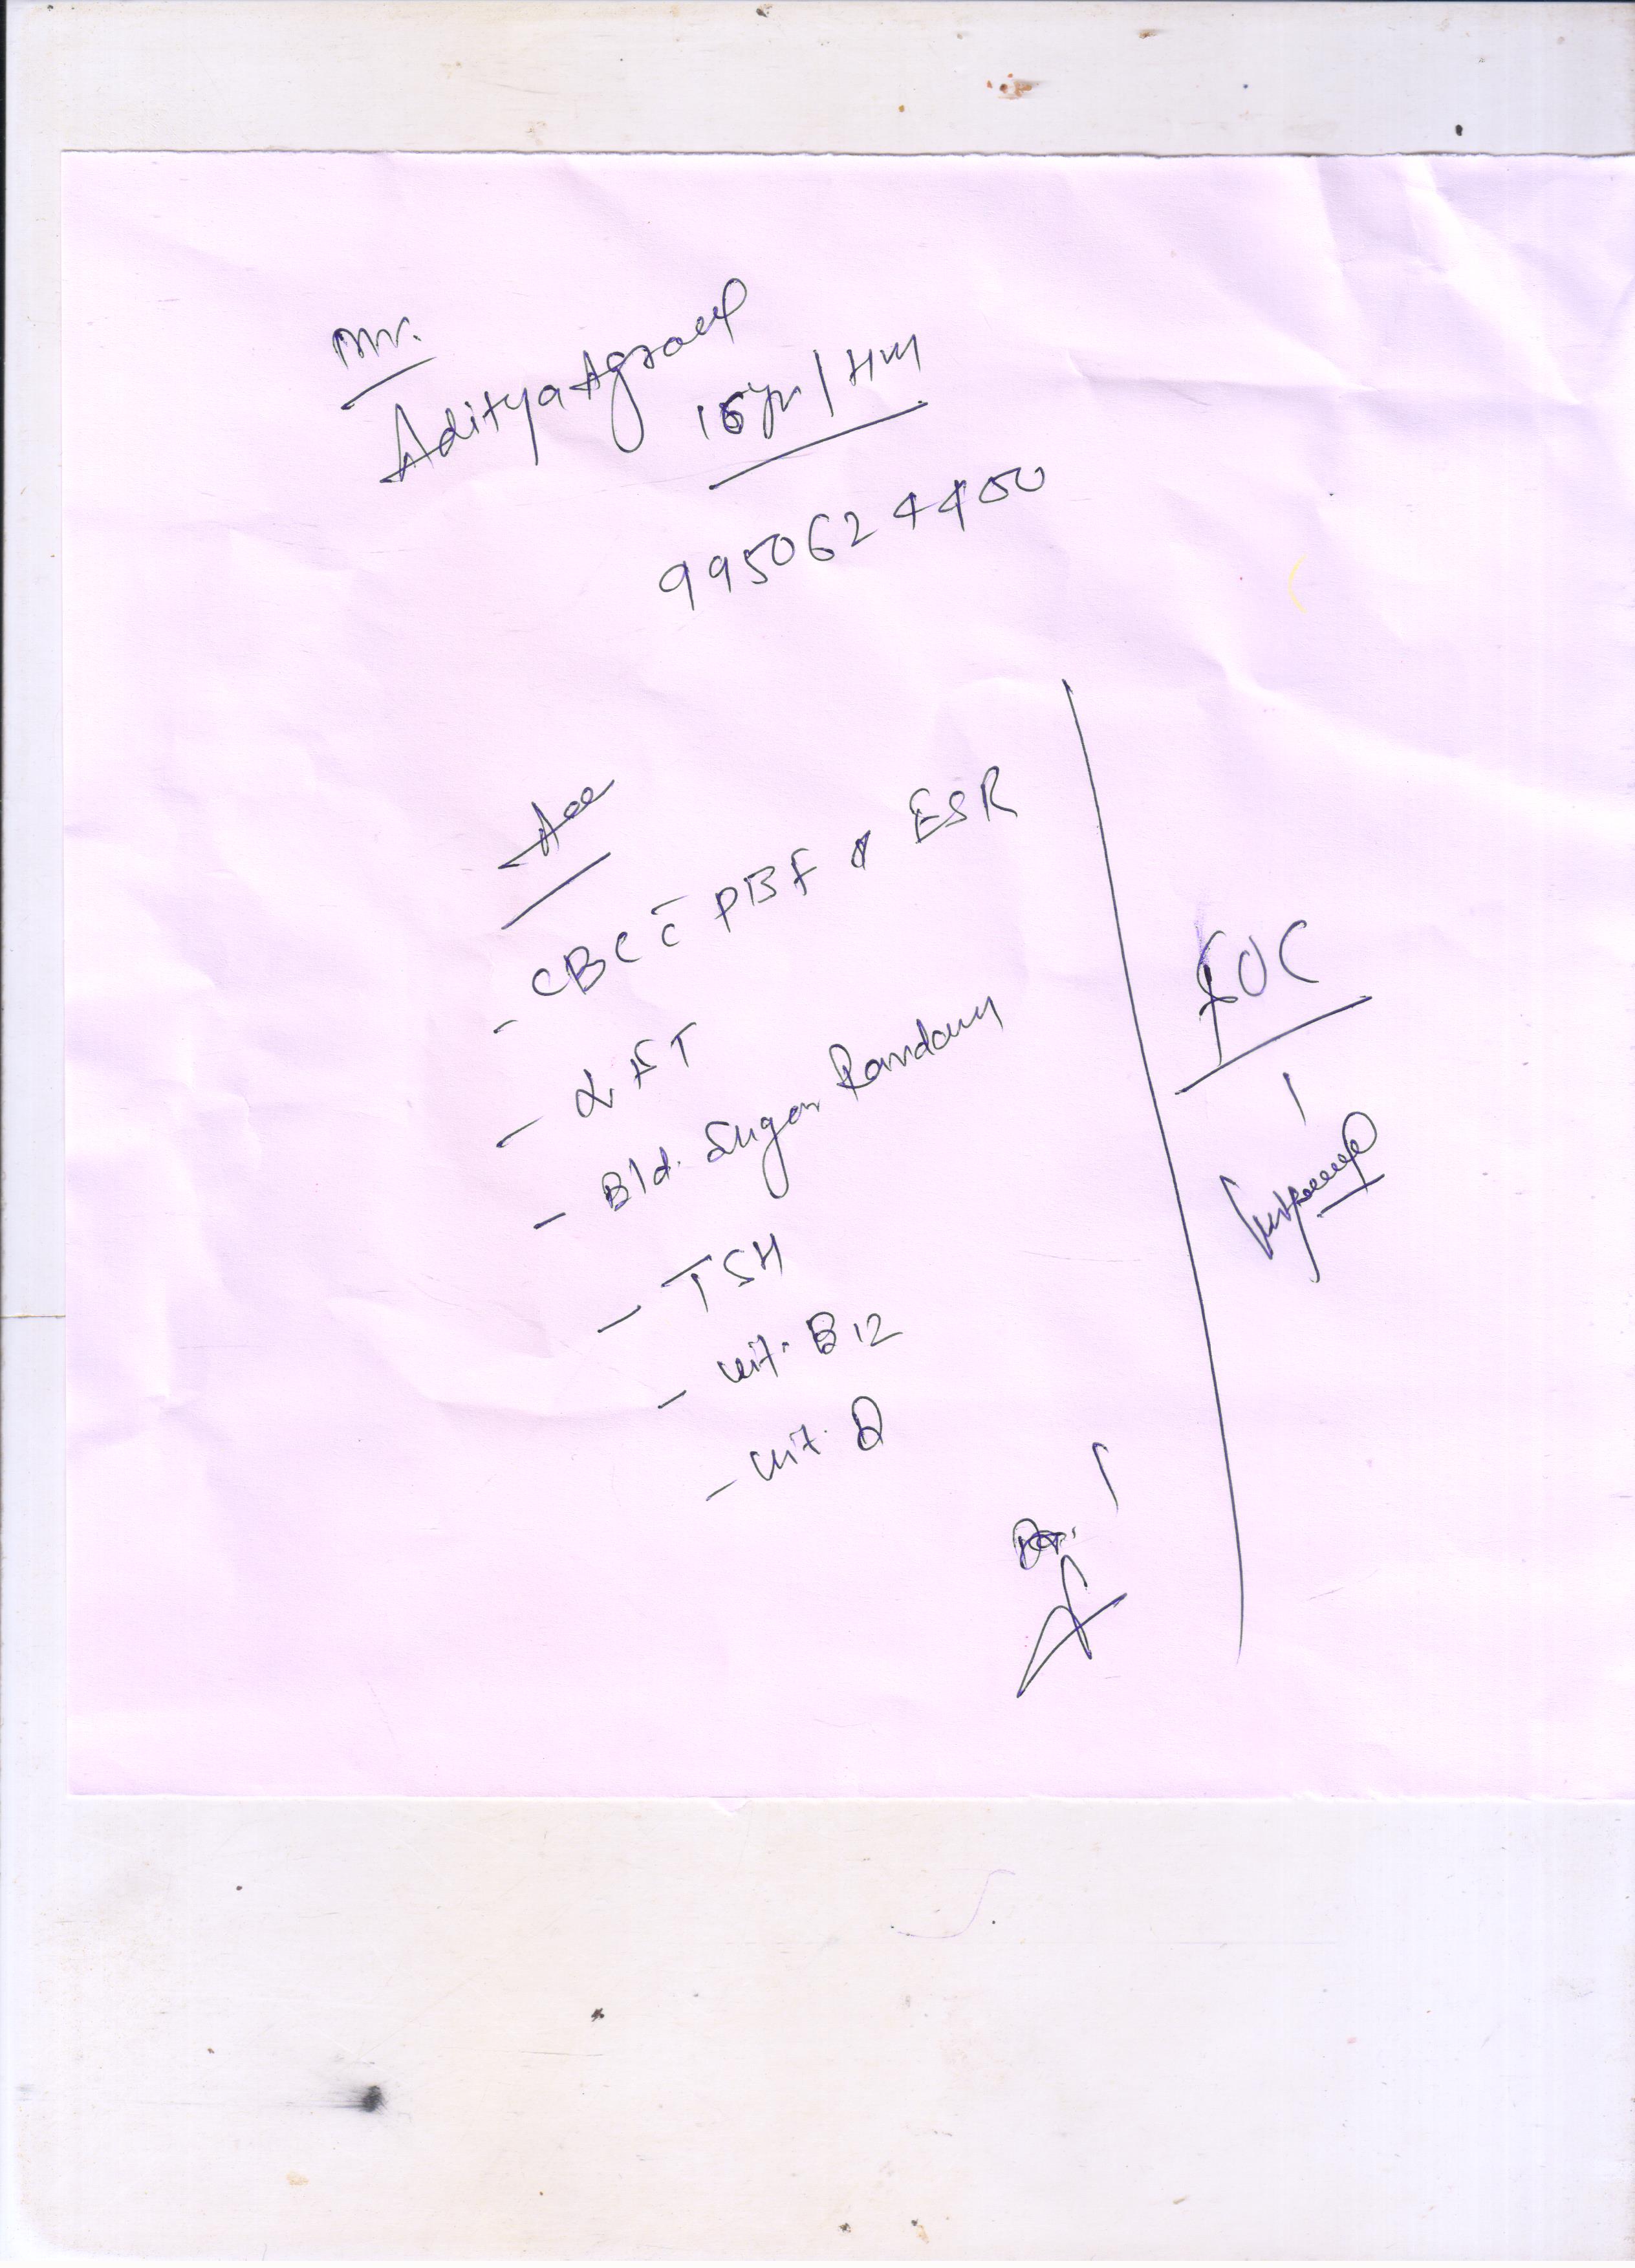 Mr.
Aditya Agrawal
15yr / HM
9950624400
CBC c̄ PBF & ESR
- LFT
- Bld. Sugar Random
- TSH
- Vit. B12
- Vit. D
FOC
Dr.